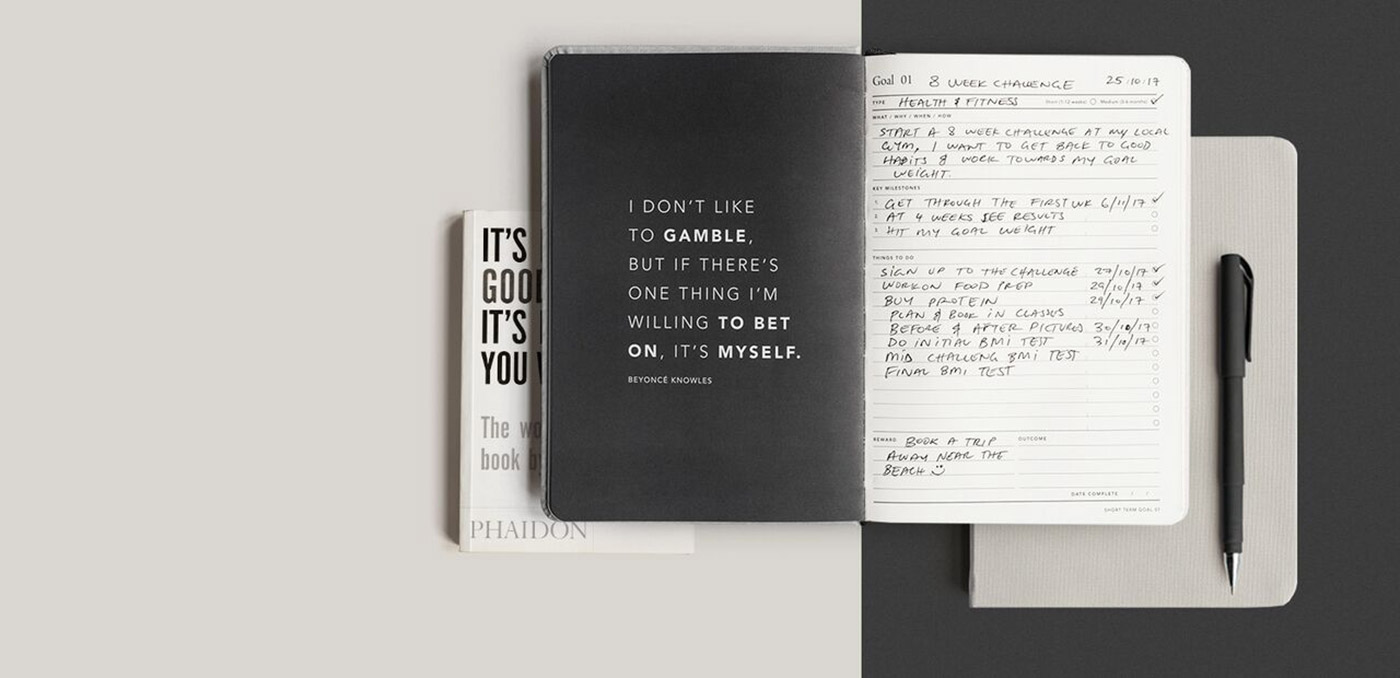 IT'S
GOOD
IT'S
YOU
The wo
book by
PHAIDON
I DON'T LIKE
TO GAMBLE,
BUT IF THERE'S
ONE THING I'M
WILLING TO BET
ON, IT'S MYSELF.
BEYONCÉ KNOWLES
Goal 01 8 WEEK CHALLENGE 25/10/17
TYPE HEALTH & FITNESS Short (1-12 weeks) Medium (3-6 months) ✓
WHAT / WHY / WHEN / HOW
START A 8 WEEK CHALLENGE AT MY LOCAL
GYM, I WANT TO GET BACK TO GOOD
HABITS & WORK TOWARDS MY GOAL
WEIGHT.
KEY MILESTONES
1 GET THROUGH THE FIRST WK 6/11/17 ✓
2 AT 4 WEEKS SEE RESULTS
3 HIT MY GOAL WEIGHT
THINGS TO DO
SIGN UP TO THE CHALLENGE 27/10/17 ✓
WORK ON FOOD PREP 29/10/17 ✓
BUY PROTEIN 29/10/17 ✓
PLAN & BOOK IN CLASSES
BEFORE & AFTER PICTURES 30/10/17
DO INITIAL BMI TEST 31/10/17
MID CHALLENG BMI TEST
FINAL BMI TEST
REWARD BOOK A TRIP
AWAY NEAR THE
BEACH
OUTCOME
DATE COMPLETE / /
SHORT TERM GOAL 01